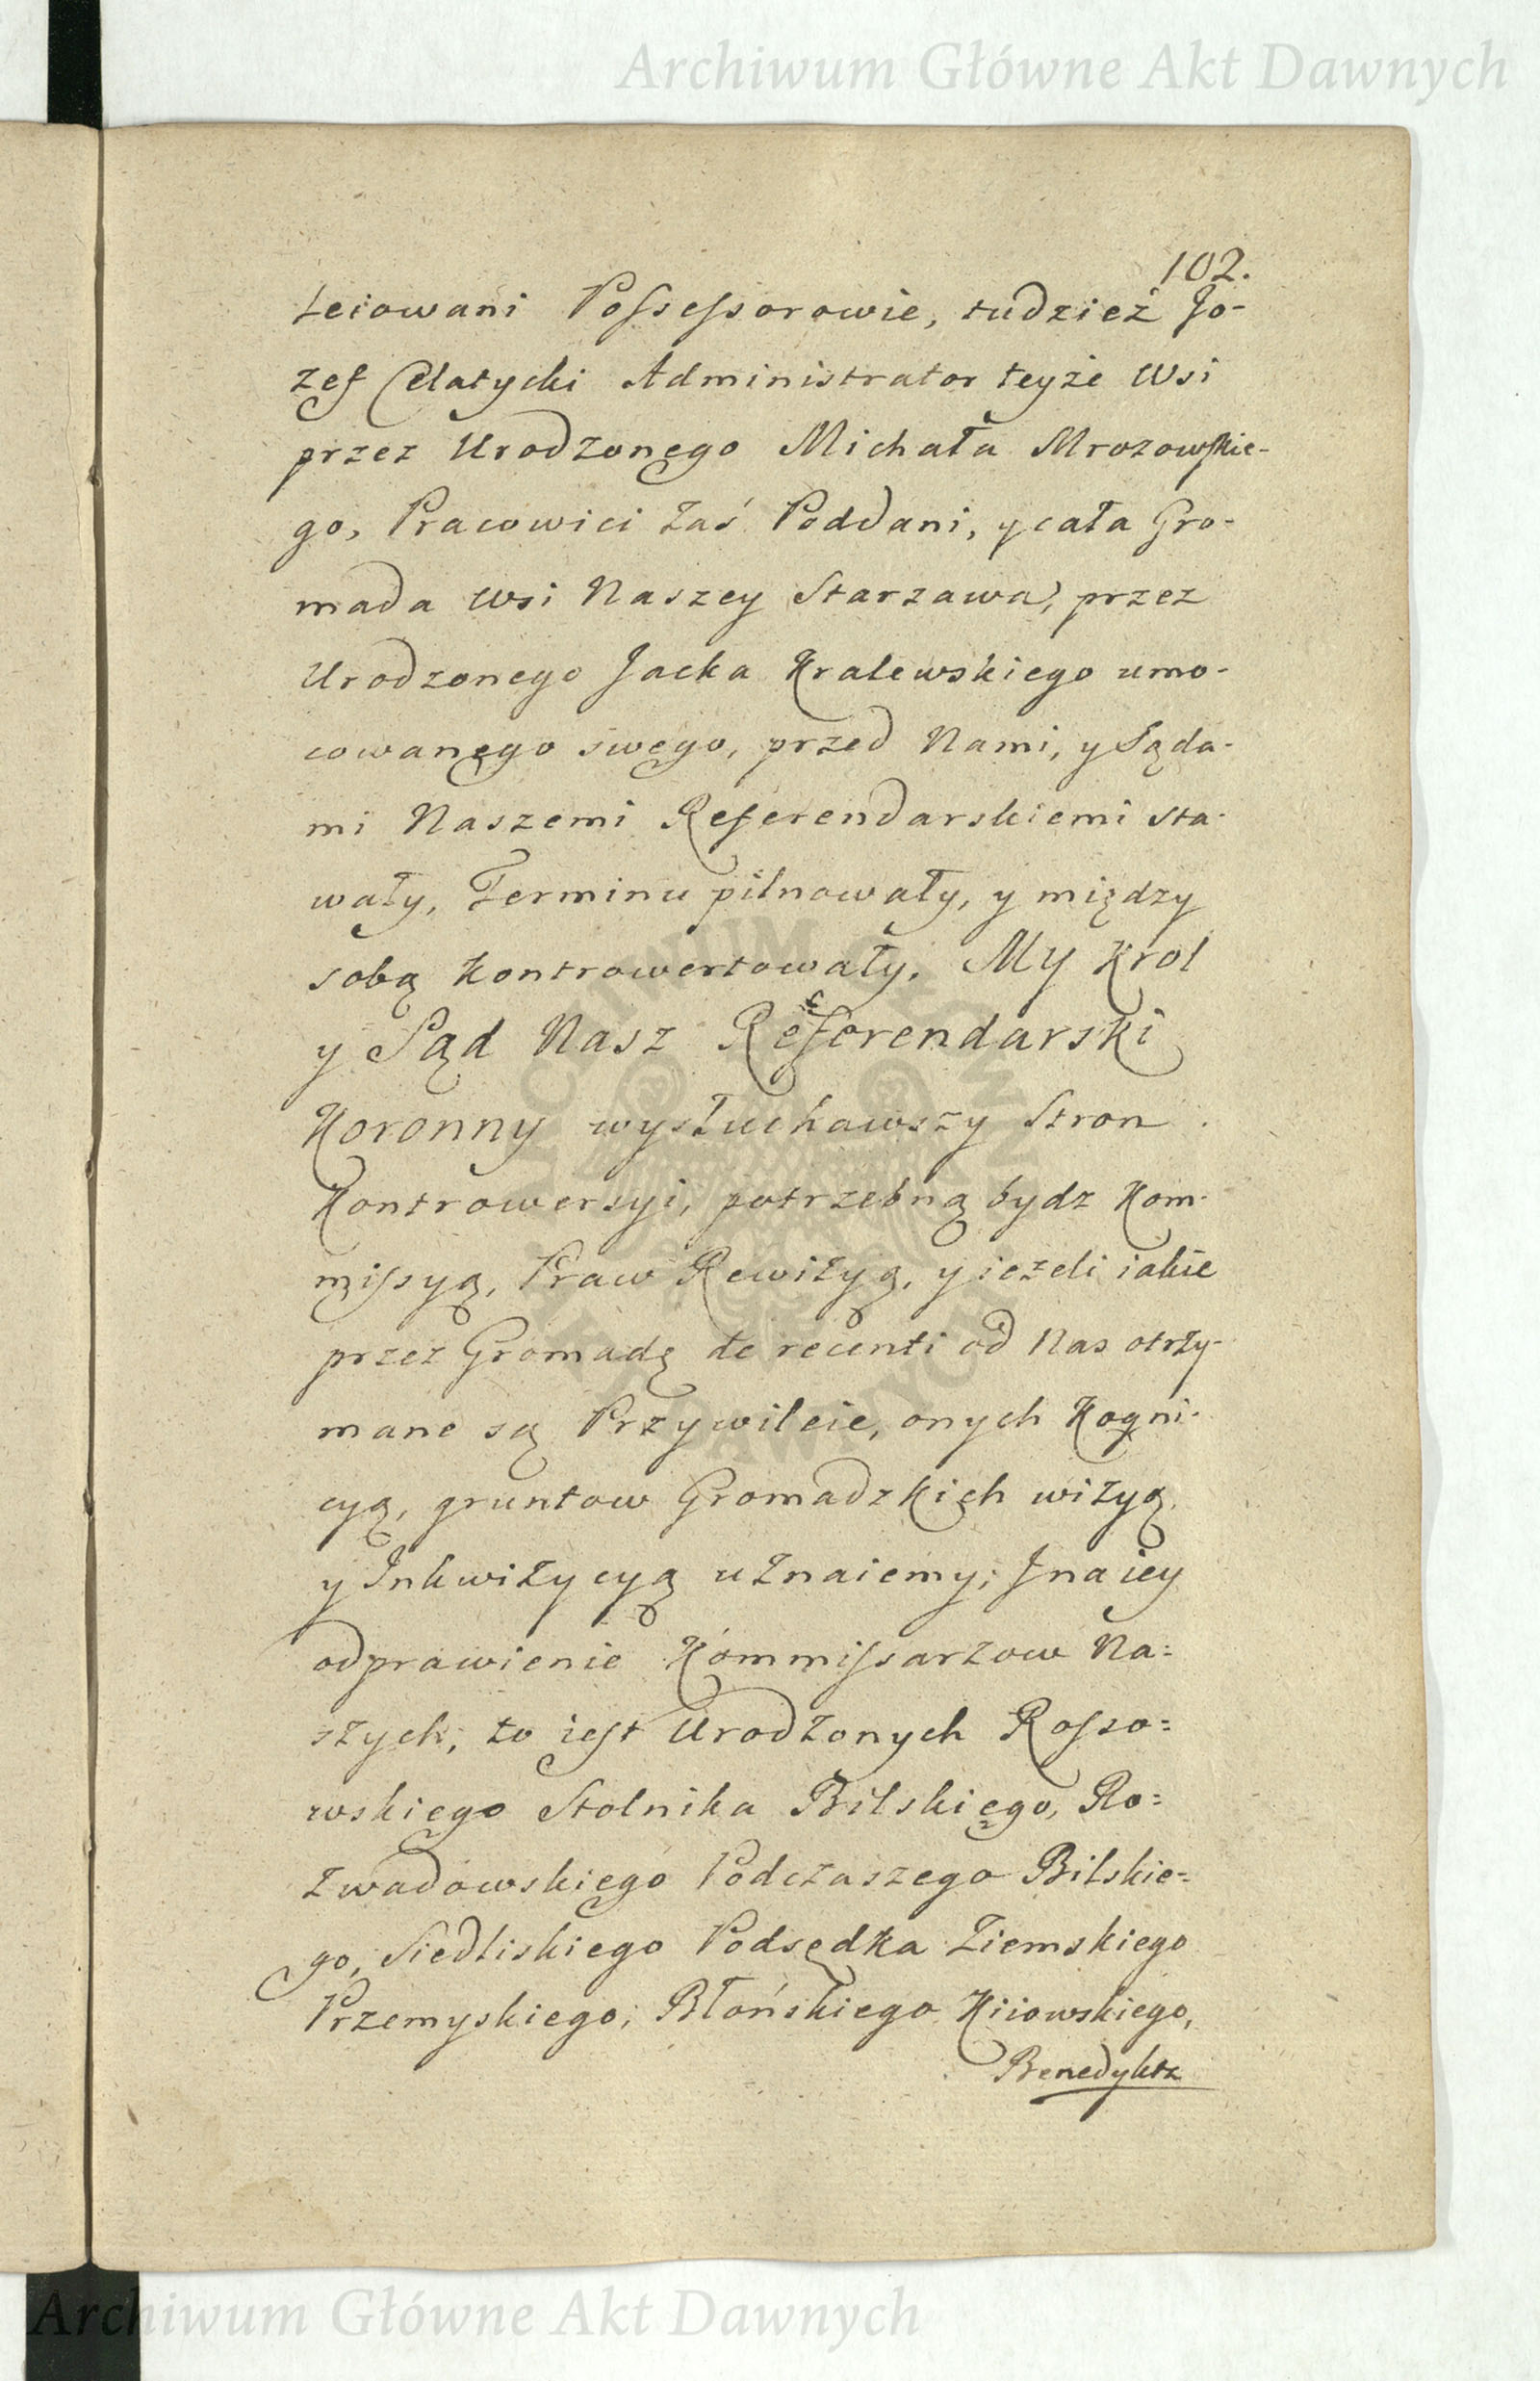 Archiwum Główne Akt Dawnych
102.
leiowani Possessorowie, tudzież Jo-
zef Matycki Administrator teyże Wsi
przez Urodzonego Michała Mrozowskie-
go, Pracowici zaś Poddani, y cała Gro-
mada Wsi Naszey Starzawa, przez
Urodzonego Jacka Kralewskiego umo-
cowanego swego, przed Nami, y Sąda-
mi Naszemi Referendarskiemi sta-
wały, Terminu pilnowały, y między
sobą kontrowertowały. My Krol
y Sąd Nasz Referendarski
Koronny wysłuchawszy Stron
Kontrowersyi, potrzebną bydz Kom-
missyą, Praw Rewizyą, y jeżeli iakie
przez Gromadę de recenti od Nas otrzy-
mane są Przywileie, onych Kogni-
cyą, gruntow Gromadzkich wizyą,
y Inkwizycyą uznaiemy; Jna iey
odprawienie Kommissarzow Na=
szych, to iest Urodzonych Rosso=
wskiego Stolnika Bilskiego, Ro=
zwadowskiego Podczaszego Bilskie=
go, Siedliskiego Podsędka Ziemskiego
Przemyskiego, Błońskiego Kiiowskiego,
Benedykta
Archiwum Główne Akt Dawnych